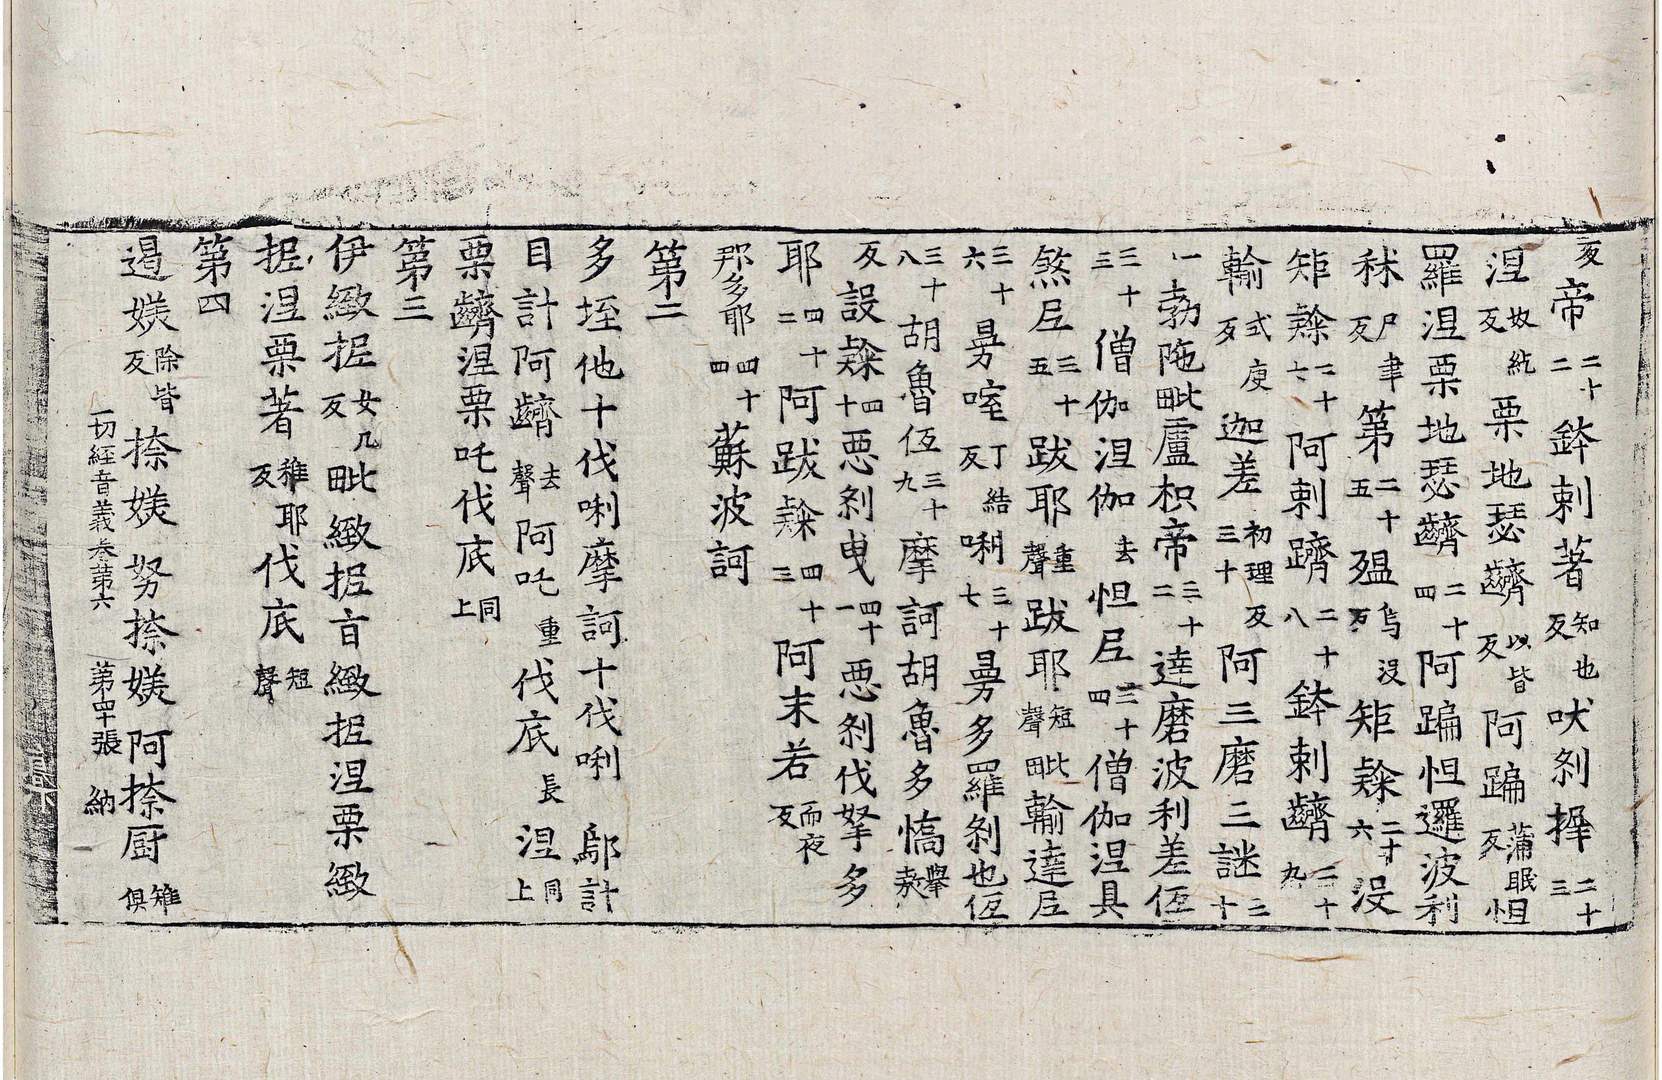 帝二十二鉢剌著知也反吠剎擇二十三
涅奴紇反栗地瑟䶩以皆反阿蹁蒲眠反怛
羅涅栗地瑟䶩二十四阿蹁怛邏波利
秫尸聿反第二十五殟烏没反矩㮈二十六没
矩㮈二十七阿剌躋二十八鉢剌䶩二十九
輸式庾反迦差初理反三十阿三磨三謎三十
一勃陁毗盧枳帝三十二達磨波利差𠈇
三十三僧伽涅伽去怛𡰱三十四僧伽涅具
煞𡰱三十五跋耶重聲跋耶短聲毗輸達𡰱
三十六曷咥丁結反唎三十七曷多羅剎也𠈇
三十八胡魯𠈇三十九摩訶胡魯多憍舉敖
反設㮈四十惡剎曳四十一惡剎伐拏多
耶四十二阿跋㮈四十三阿末若而夜反
那多耶四十四蘇波訶
第二
多垤他十伐唎摩訶十伐唎 鄔計
目計阿䶩去聲阿吒重伐底長涅同上
栗䶩涅栗吒伐底同上
第三
伊緻抳女几反毗緻抳旨緻抳涅栗緻
抳涅栗著雉耶反伐底短聲
第四
遏媄除皆反捺媄努捺媄阿捺厨雉俱
一切經音義卷第六 第四十張 納